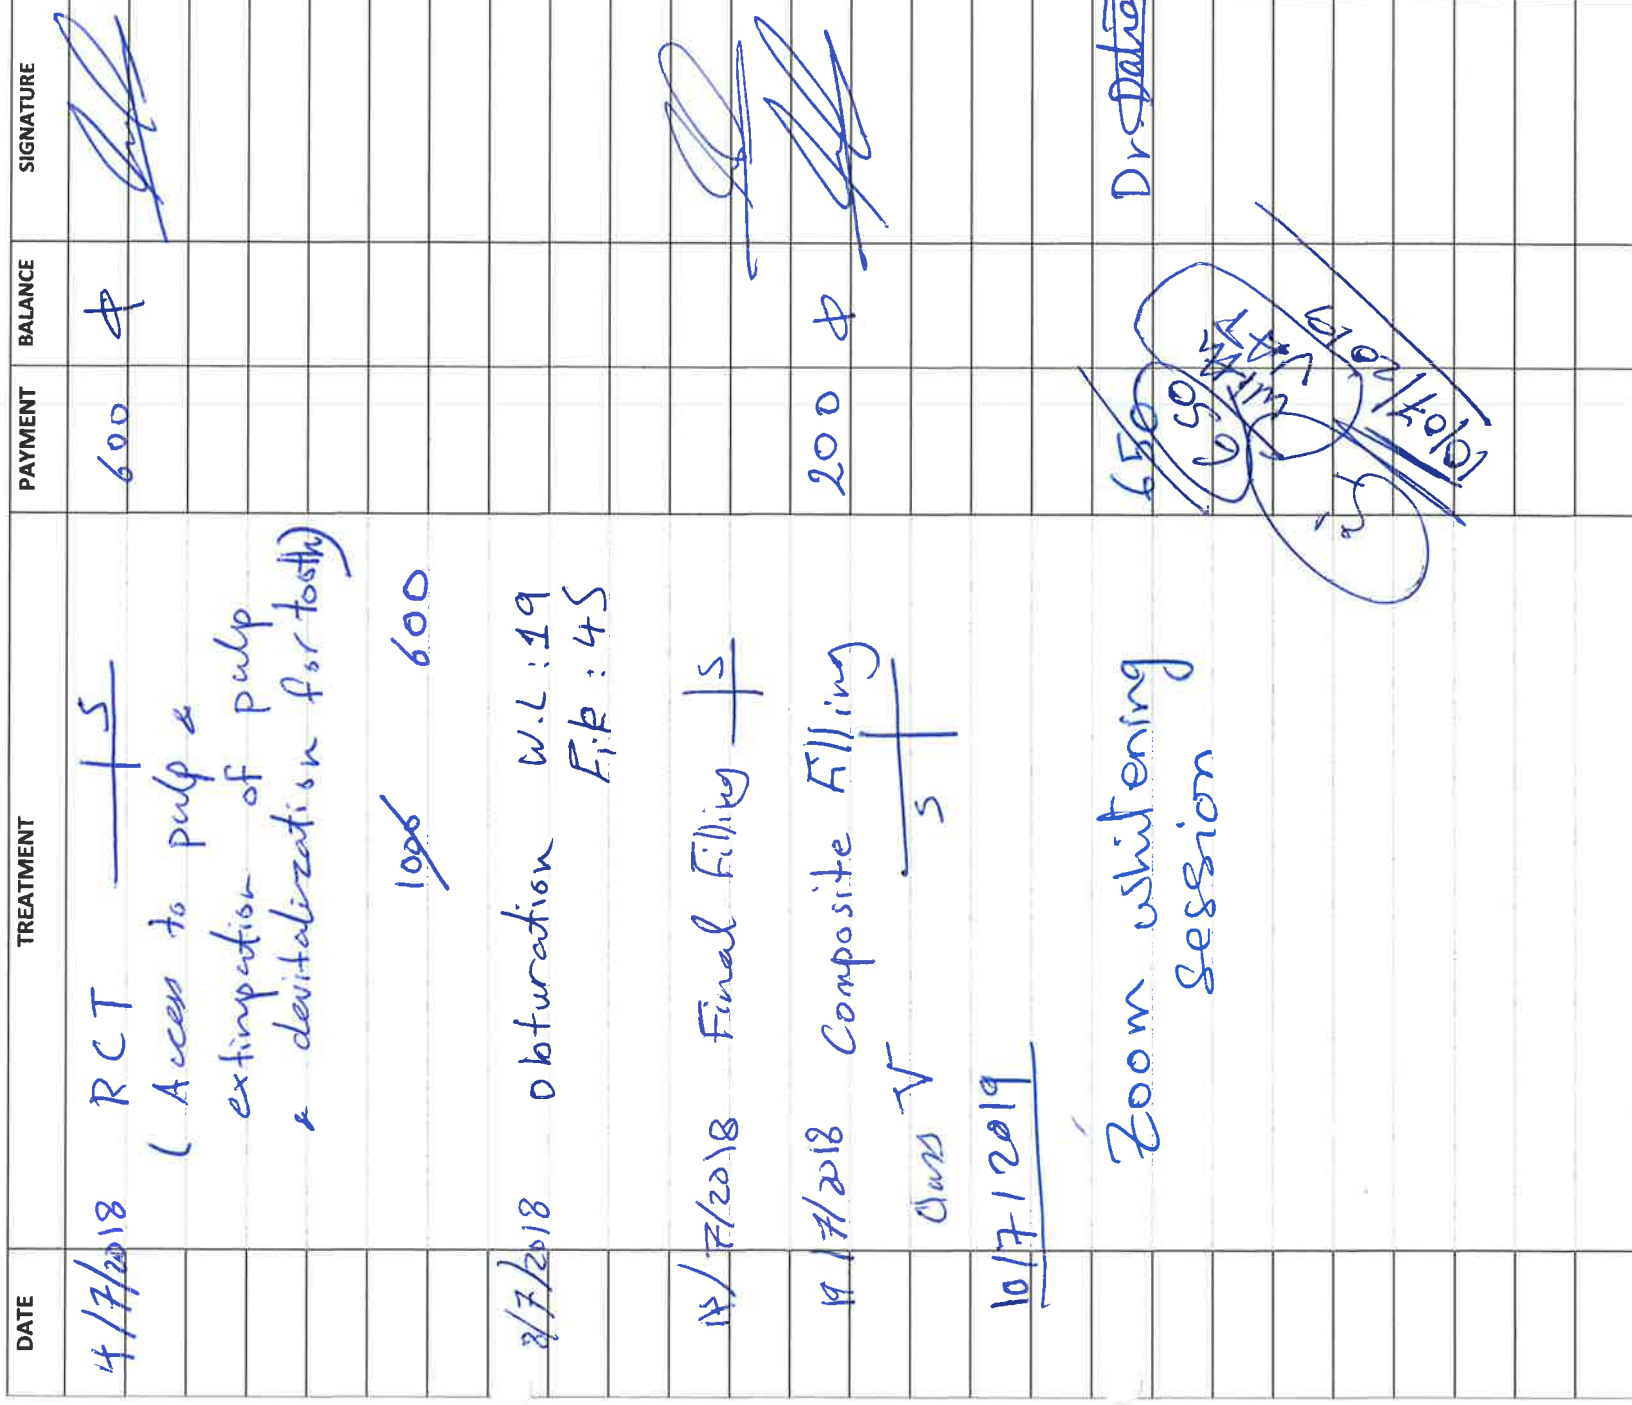 DATE TREATMENT PAYMENT BALANCE SIGNATURE
4/7/2018 RCT 5 600
( Access to pulp &
extirpation of pulp
& devitalization for tooth)
1000 600
8/7/2018 obturation W.L : 19
File : 45
/7/2018 Final Filling 5
19/7/2018 Composite Filling 200
Class V 5
10/7/2019
Zoom whitening 650 Dr
Session
650
10/07/2019